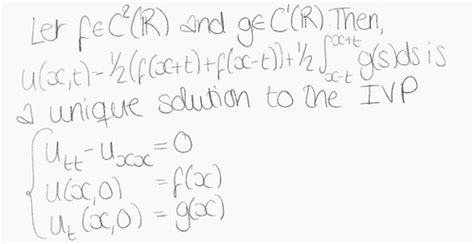 Let f∈C²(ℝ) and g∈C¹(ℝ). Then,
u(x,t)=½(f(x+t)+f(x-t))+½∫ₓ₋ₜˣ⁺ᵗ g(s)ds is
a unique solution to the IVP
{ uₜₜ-uₓₓ=0
u(x,0) =f(x)
uₜ(x,0) =g(x)